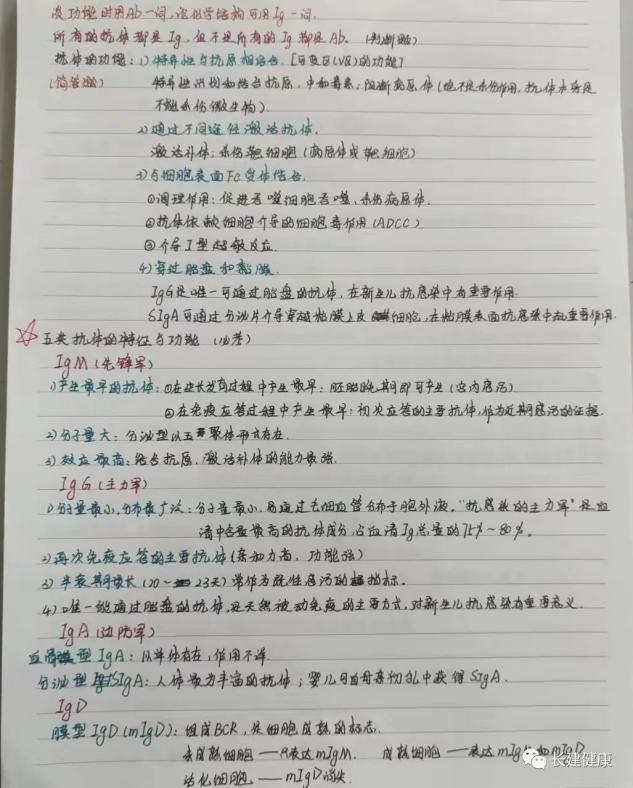 谈功能时用Ab一词，谈化学结构可用Ig一词.
所有的抗体都是Ig，但不是所有的Ig都是Ab。(判断题)
抗体的功能：1)特异性与抗原相结合.［可变区(V区)的功能］
(简答题) 特异性识别和结合抗原，中和毒素；阻断病原体(但不是杀伤作用，抗体本身是
不能杀伤微生物).
2)通过不同途径激活抗体.
激活补体：杀伤靶细胞(病原体或靶细胞)
3)与细胞表面Fc受体结合.
①调理作用：促进吞噬细胞吞噬、杀伤病原体.
②抗体依赖细胞介导的细胞毒作用(ADCC)
③介导Ⅰ型超敏反应.
4)穿过胎盘和黏膜.
IgG是唯一可通过胎盘的抗体，在新生儿抗感染中有重要作用.
SIgA可通过分泌片介导穿越粘膜上皮细胞，在粘膜表面抗感染中起重要作用.
☆五类抗体的特征与功能(必考)
IgM(先锋军)
1)产生最早的抗体：①在生长发育过程中产生最早：胚胎晚期即可产生(宫内感染)
②在免疫应答过程中产生最早：初次应答的主要抗体，作为近期感染的证据.
2)分子量大：分泌型以五聚体形式存在.
3)效应最高：结合抗原、激活补体的能力最强.
IgG(主力军)
1)分子量最小，分布最广泛：分子量最小，易通过毛细血管分布于胞外液。"抗感染的主力军"是血
清中含量最高的抗体成分，占血清Ig总量的75%~80%。
2)再次免疫应答的主要抗体(亲和力高，功能强)
3)半衰期最长(20~23天)常作为既性感染的指标.
4)唯一能通过胎盘的抗体，是天然被动免疫的主要方式，对新生儿抗感染有重要意义.
IgA(边防军)
血清型IgA：以单体存在，作用不详.
分泌型SIgA：人体最为丰富的抗体；婴儿可自母亲初乳中获得SIgA.
IgD
膜型IgD(mIgD)：组成BCR，是细胞成熟的标志.
未成熟细胞——只表达mIgM. 成熟细胞——表达mIgM和mIgD
活化细胞——mIgD消失.
长建健康